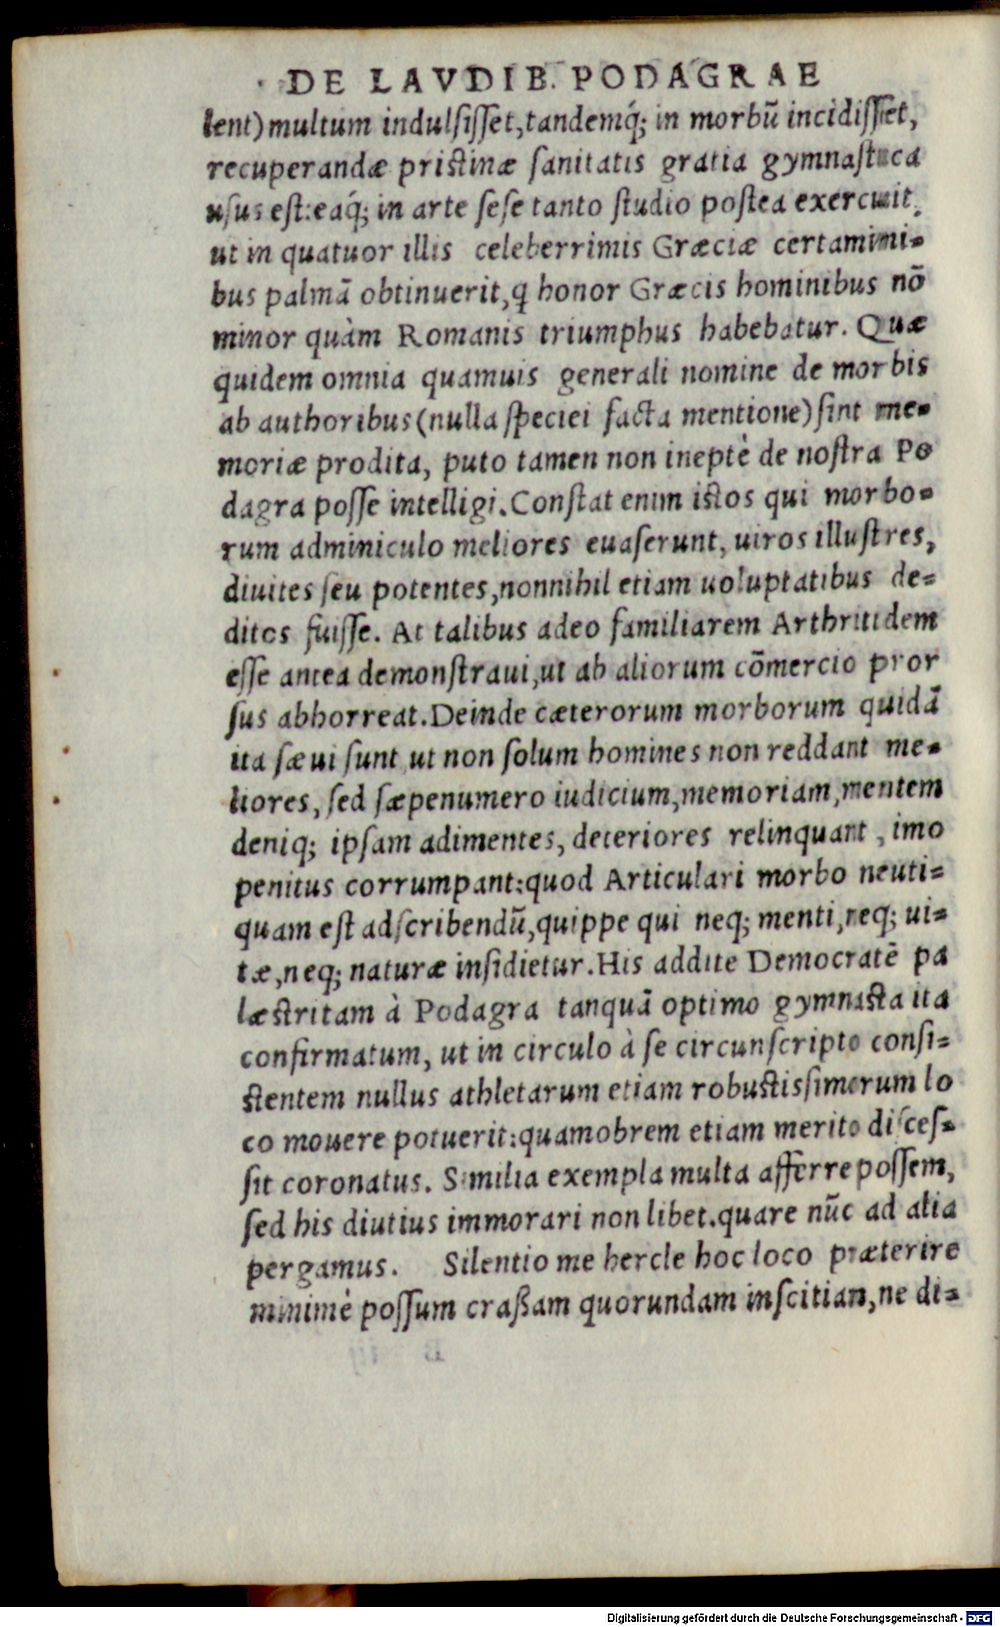 DE LAVDIB. PODAGRAE
lent) multum indulſiſſet, tandemq́; in morbū incidiſſet,
recuperandæ priſtinæ ſanitatis gratia gymnaſtica
uſus eſt: eaq́; in arte ſeſe tanto ſtudio poſtea exercuit,
ut in quatuor illis celeberrimis Græciæ certamini-
bus palmā obtinuerit, q honor Græcis hominibus nō
minor quàm Romanis triumphus habebatur. Quæ
quidem omnia quamuis generali nomine de morbis
ab authoribus (nulla ſpeciei facta mentione) ſint me-
moriæ prodita, puto tamen non ineptè de noſtra Po
dagra poſſe intelligi. Conſtat enim iſtos qui morbo-
rum adminiculo meliores euaſerunt, uiros illuſtres,
diuites ſeu potentes, nonnihil etiam uoluptatibus de-
ditos fuiſſe. At talibus adeo familiarem Arthritidem
eſſe antea demonſtraui, ut ab aliorum cōmercio pror
ſus abhorreat. Deinde cæterorum morborum quidā
ita ſæui ſunt, ut non ſolum homines non reddant me-
liores, ſed ſæpenumero iudicium, memoriam, mentem
deniq; ipſam adimentes, deteriores relinquant, imo
penitus corrumpant: quod Articulari morbo neuti-
quam eſt adſcribendū, quippe qui neq; menti, neq; ui-
tæ, neq; naturæ inſidietur. His addite Democratē pa
læſtritam à Podagra tanquā optimo gymnaſta ita
confirmatum, ut in circulo à ſe circunſcripto conſi-
ſtentem nullus athletarum etiam robuſtiſſimorum lo
co mouere potuerit: quamobrem etiam merito diſceſ-
ſit coronatus. Similia exempla multa afferre poſſem,
ſed his diutius immorari non libet. quare nūc ad alia
pergamus. Silentio me hercle hoc loco præterire
minimè poſſum craßam quorundam inſcitiam, ne di-
Digitalisierung gefördert durch die Deutsche Forschungsgemeinschaft - DFG